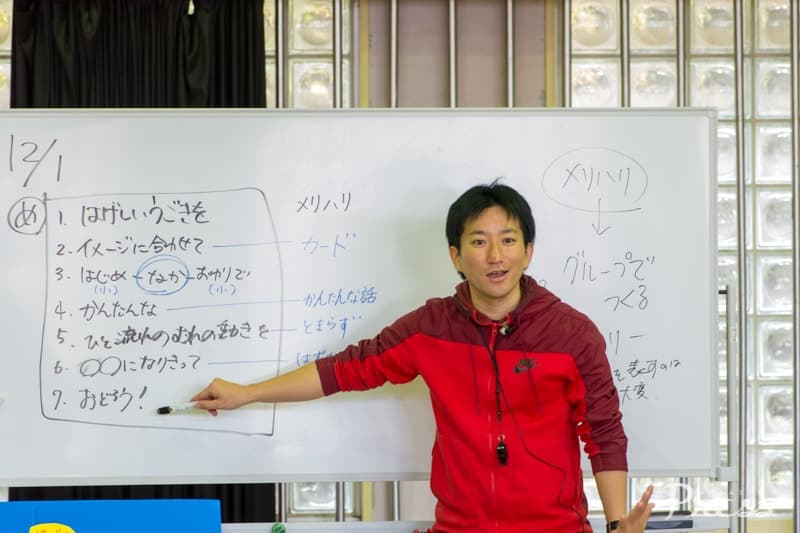 12/1
め
1. はげしいうごきを
2. イメージに合わせて
3. はじめ-なか-おわりで
(小) (小)
4. かんたんな
5. ひと流れのむれの動きを
6. ○○になりきって
7. おどろう!
メリハリ
カード
かんたんな話
とまらず
メリハリ
グループで
つくる
リー
を表すのは
大変
NIKE